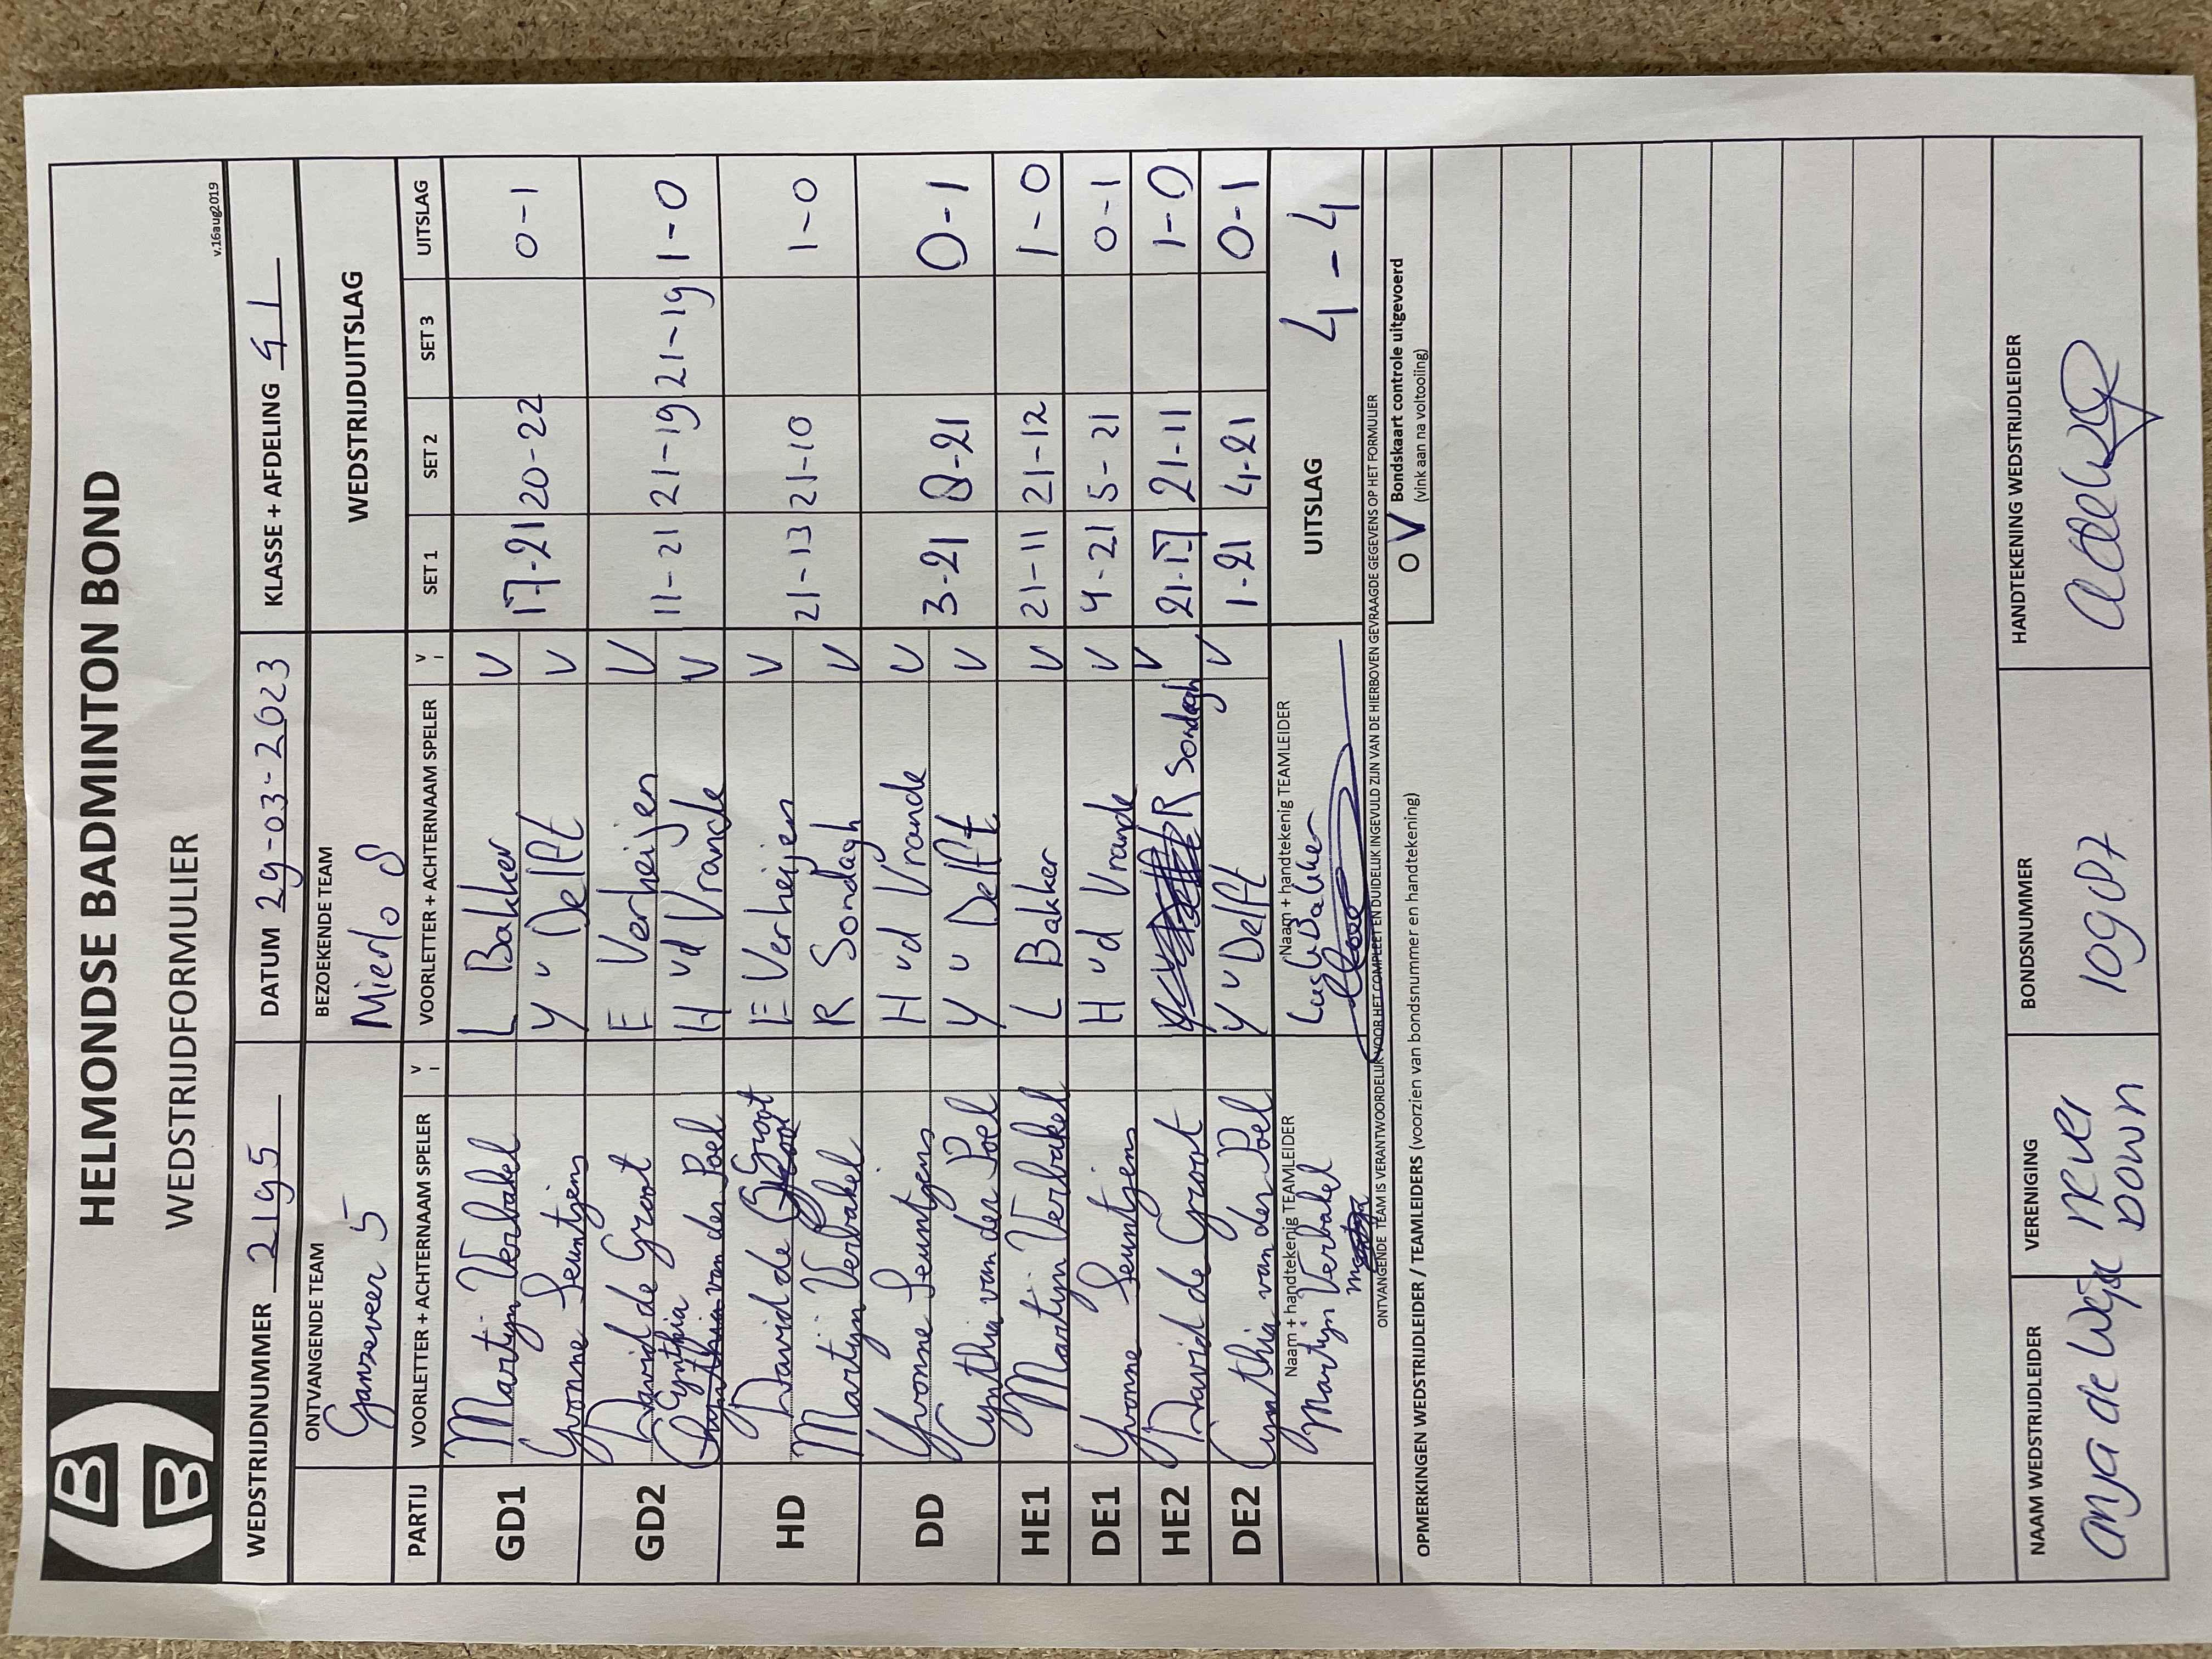 HELMONDSE BADMINTON BOND
WEDSTRIJDFORMULIER
v.16aug2019
WEDSTRIJDNUMMER 2195 DATUM 29-03-2023 KLASSE + AFDELING 41
ONTVANGENDE TEAM BEZOEKENDE TEAM WEDSTRIJDUITSLAG
Ganzeveer 5 Mierlo 8
PARTIJ VOORLETTER + ACHTERNAAM SPELER V VOORLETTER + ACHTERNAAM SPELER V SET 1 SET 2 SET 3 UITSLAG
GD1 Martijn Verbakel L Bakker V 17-21 20-22 0-1
Yvonne Seuntjens Y v Delft V
GD2 David de Groot E Verheijen V 11-21 21-19 21-19 1-0
Cynthia van der Poel H vd Vrande V
HD David de Groot E Verheijen V 21-13 21-10 1-0
Martijn Verbakel R Sondagh V
DD Yvonne Seuntjens H vd Vrande V 3-21 8-21 0-1
Cynthia van der Poel Y v Delft V
HE1 Martijn Verbakel L Bakker V 21-11 21-12 1-0
DE1 Yvonne Seuntjens H vd Vrande V 4-21 5-21 0-1
HE2 David de Groot R Sondagh V 21-17 21-11 1-0
DE2 Cynthia van der Poel Y v Delft V 1-21 4-21 0-1
Naam + handtekenig TEAMLEIDER Naam + handtekenig TEAMLEIDER UITSLAG 4-4
Martijn Verbakel Bakker
ONTVANGENDE TEAM IS VERANTWOORDELIJK VOOR HET COMPLEET EN DUIDELIJK INGEVULD ZIJN VAN DE HIERBOVEN GEVRAAGDE GEGEVENS OP HET FORMULIER
O V Bondskaart controle uitgevoerd
(vink aan na voltooiing)
OPMERKINGEN WEDSTRIJDLEIDER / TEAMLEIDERS (voorzien van bondsnummer en handtekening)
NAAM WEDSTRIJDLEIDER VERENIGING BONDSNUMMER HANDTEKENING WEDSTRIJDLEIDER
Anja de Wijs never down 109087